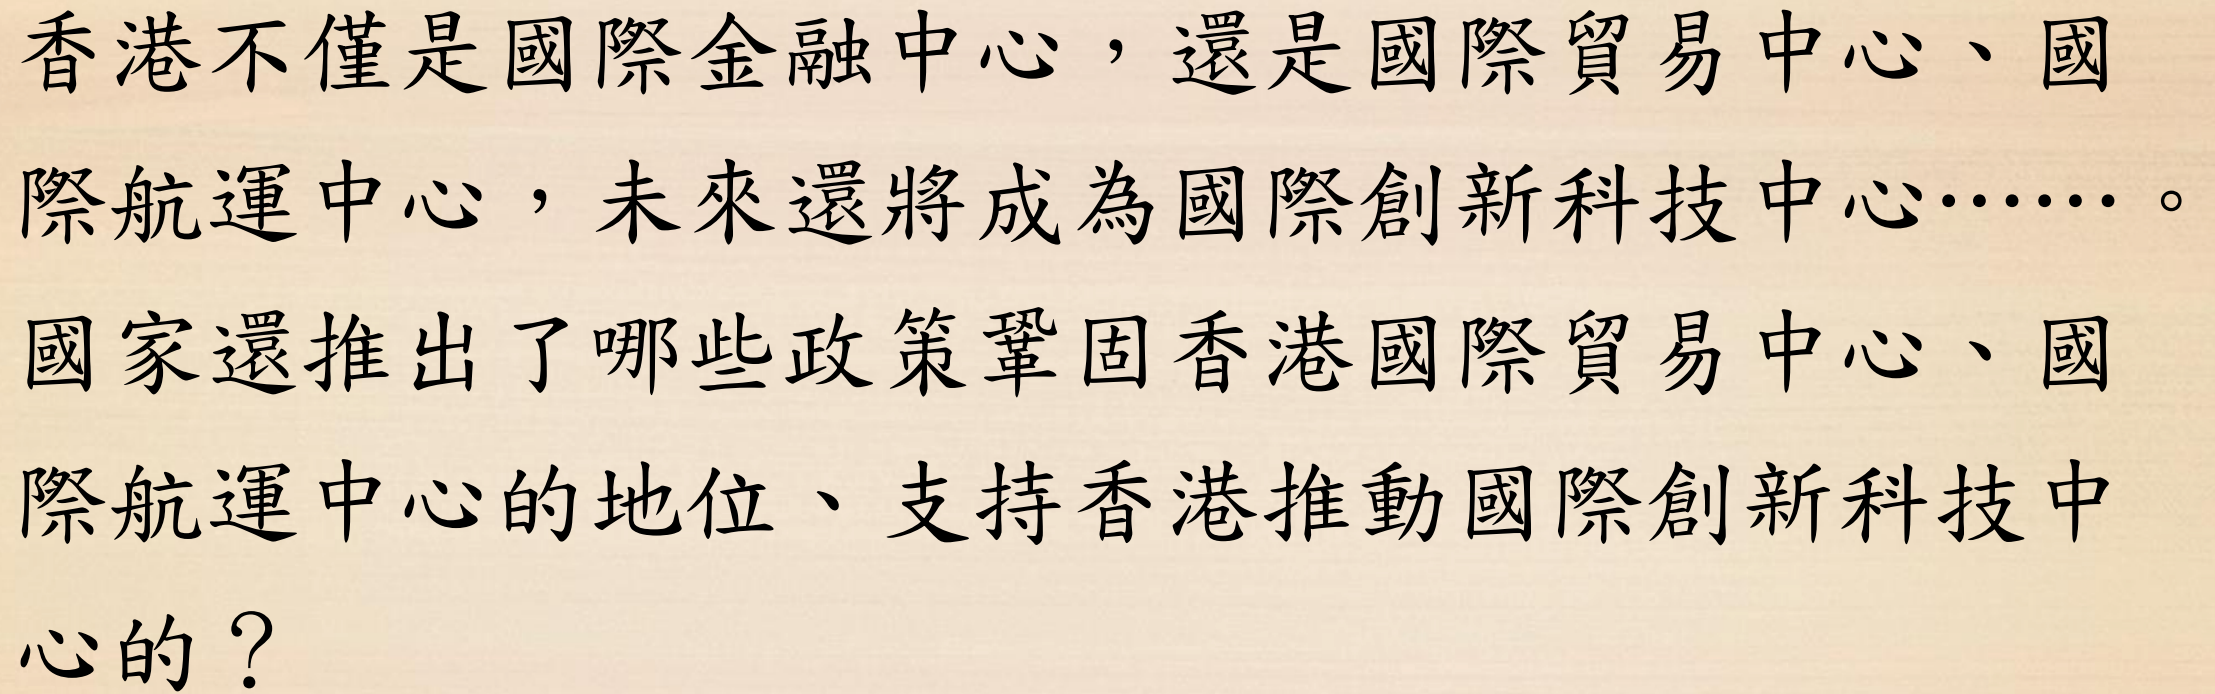 香港不僅是國際金融中心，還是國際貿易中心、國
際航運中心，未來還將成為國際創新科技中心……。
國家還推出了哪些政策鞏固香港國際貿易中心、國
際航運中心的地位、支持香港推動國際創新科技中
心的？